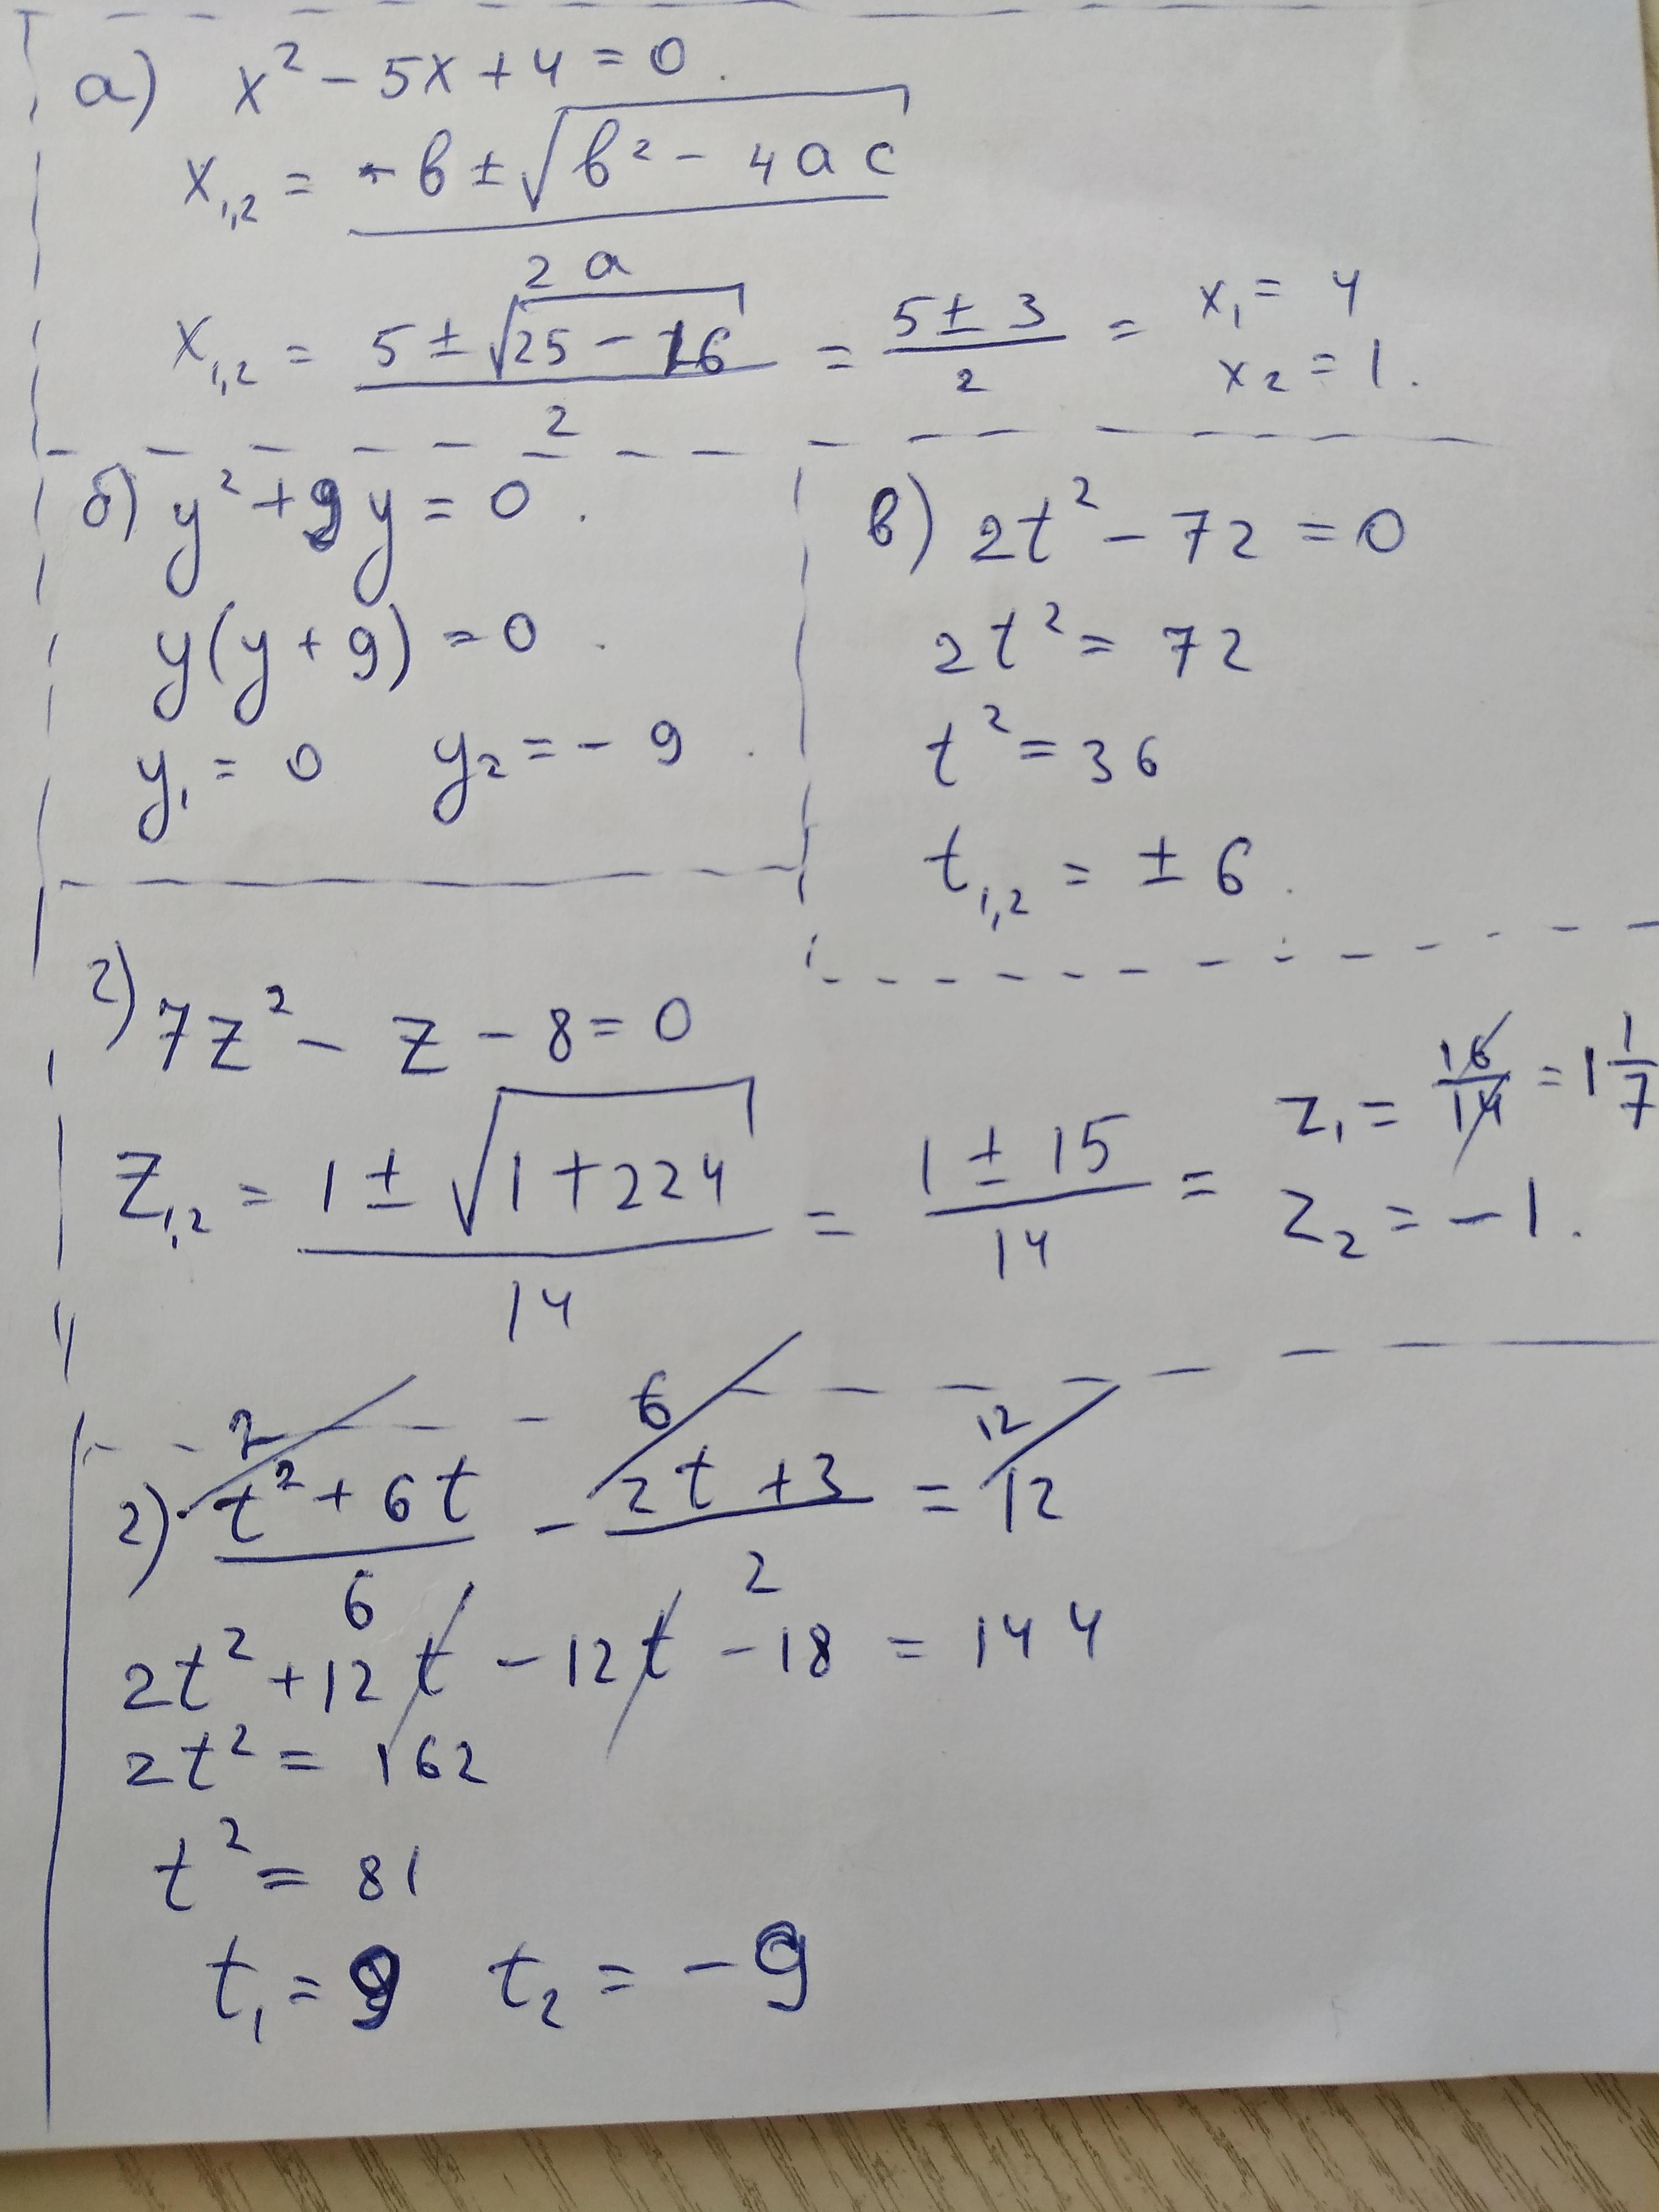 а) x² - 5x + 4 = 0.
x₁,₂ = -b ± √(b² - 4ac) / 2a
x₁,₂ = 5 ± √(25 - 16) / 2 = 5 ± 3 / 2 = x₁ = 4 x₂ = 1.
б) y² + 9y = 0.
y(y + 9) = 0.
y₁ = 0 y₂ = - 9.
в) 2t² - 72 = 0
2t² = 72
t² = 36
t₁,₂ = ± 6.
г) 7z² - z - 8 = 0
z₁,₂ = 1 ± √(1 + 224) / 14 = 1 ± 15 / 14 = z₁ = 16/14 = 1 1/7 z₂ = -1.
2 6 12
г) t² + 6t / 6 - 2t + 3 / 2 = 12
2t² + 12t - 12t - 18 = 144
2t² = 162
t² = 81
t₁ = 9 t₂ = - 9